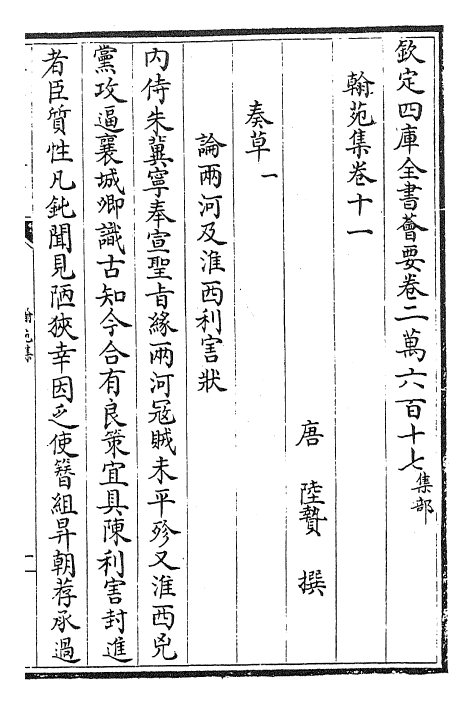 欽定四庫全書薈要卷二萬六百十七集部
翰苑集卷十一
唐 陸贄 撰
奏草一
論兩河及淮西利害狀
內侍朱冀寧奉宣聖旨緣兩河寇賊未平殄又淮西兇
黨攻逼襄城卿識古知今合有良策宜具陳利害封進
者臣質性凡鈍聞見陋狹幸因乏使簪組昇朝荐承過
翰苑集